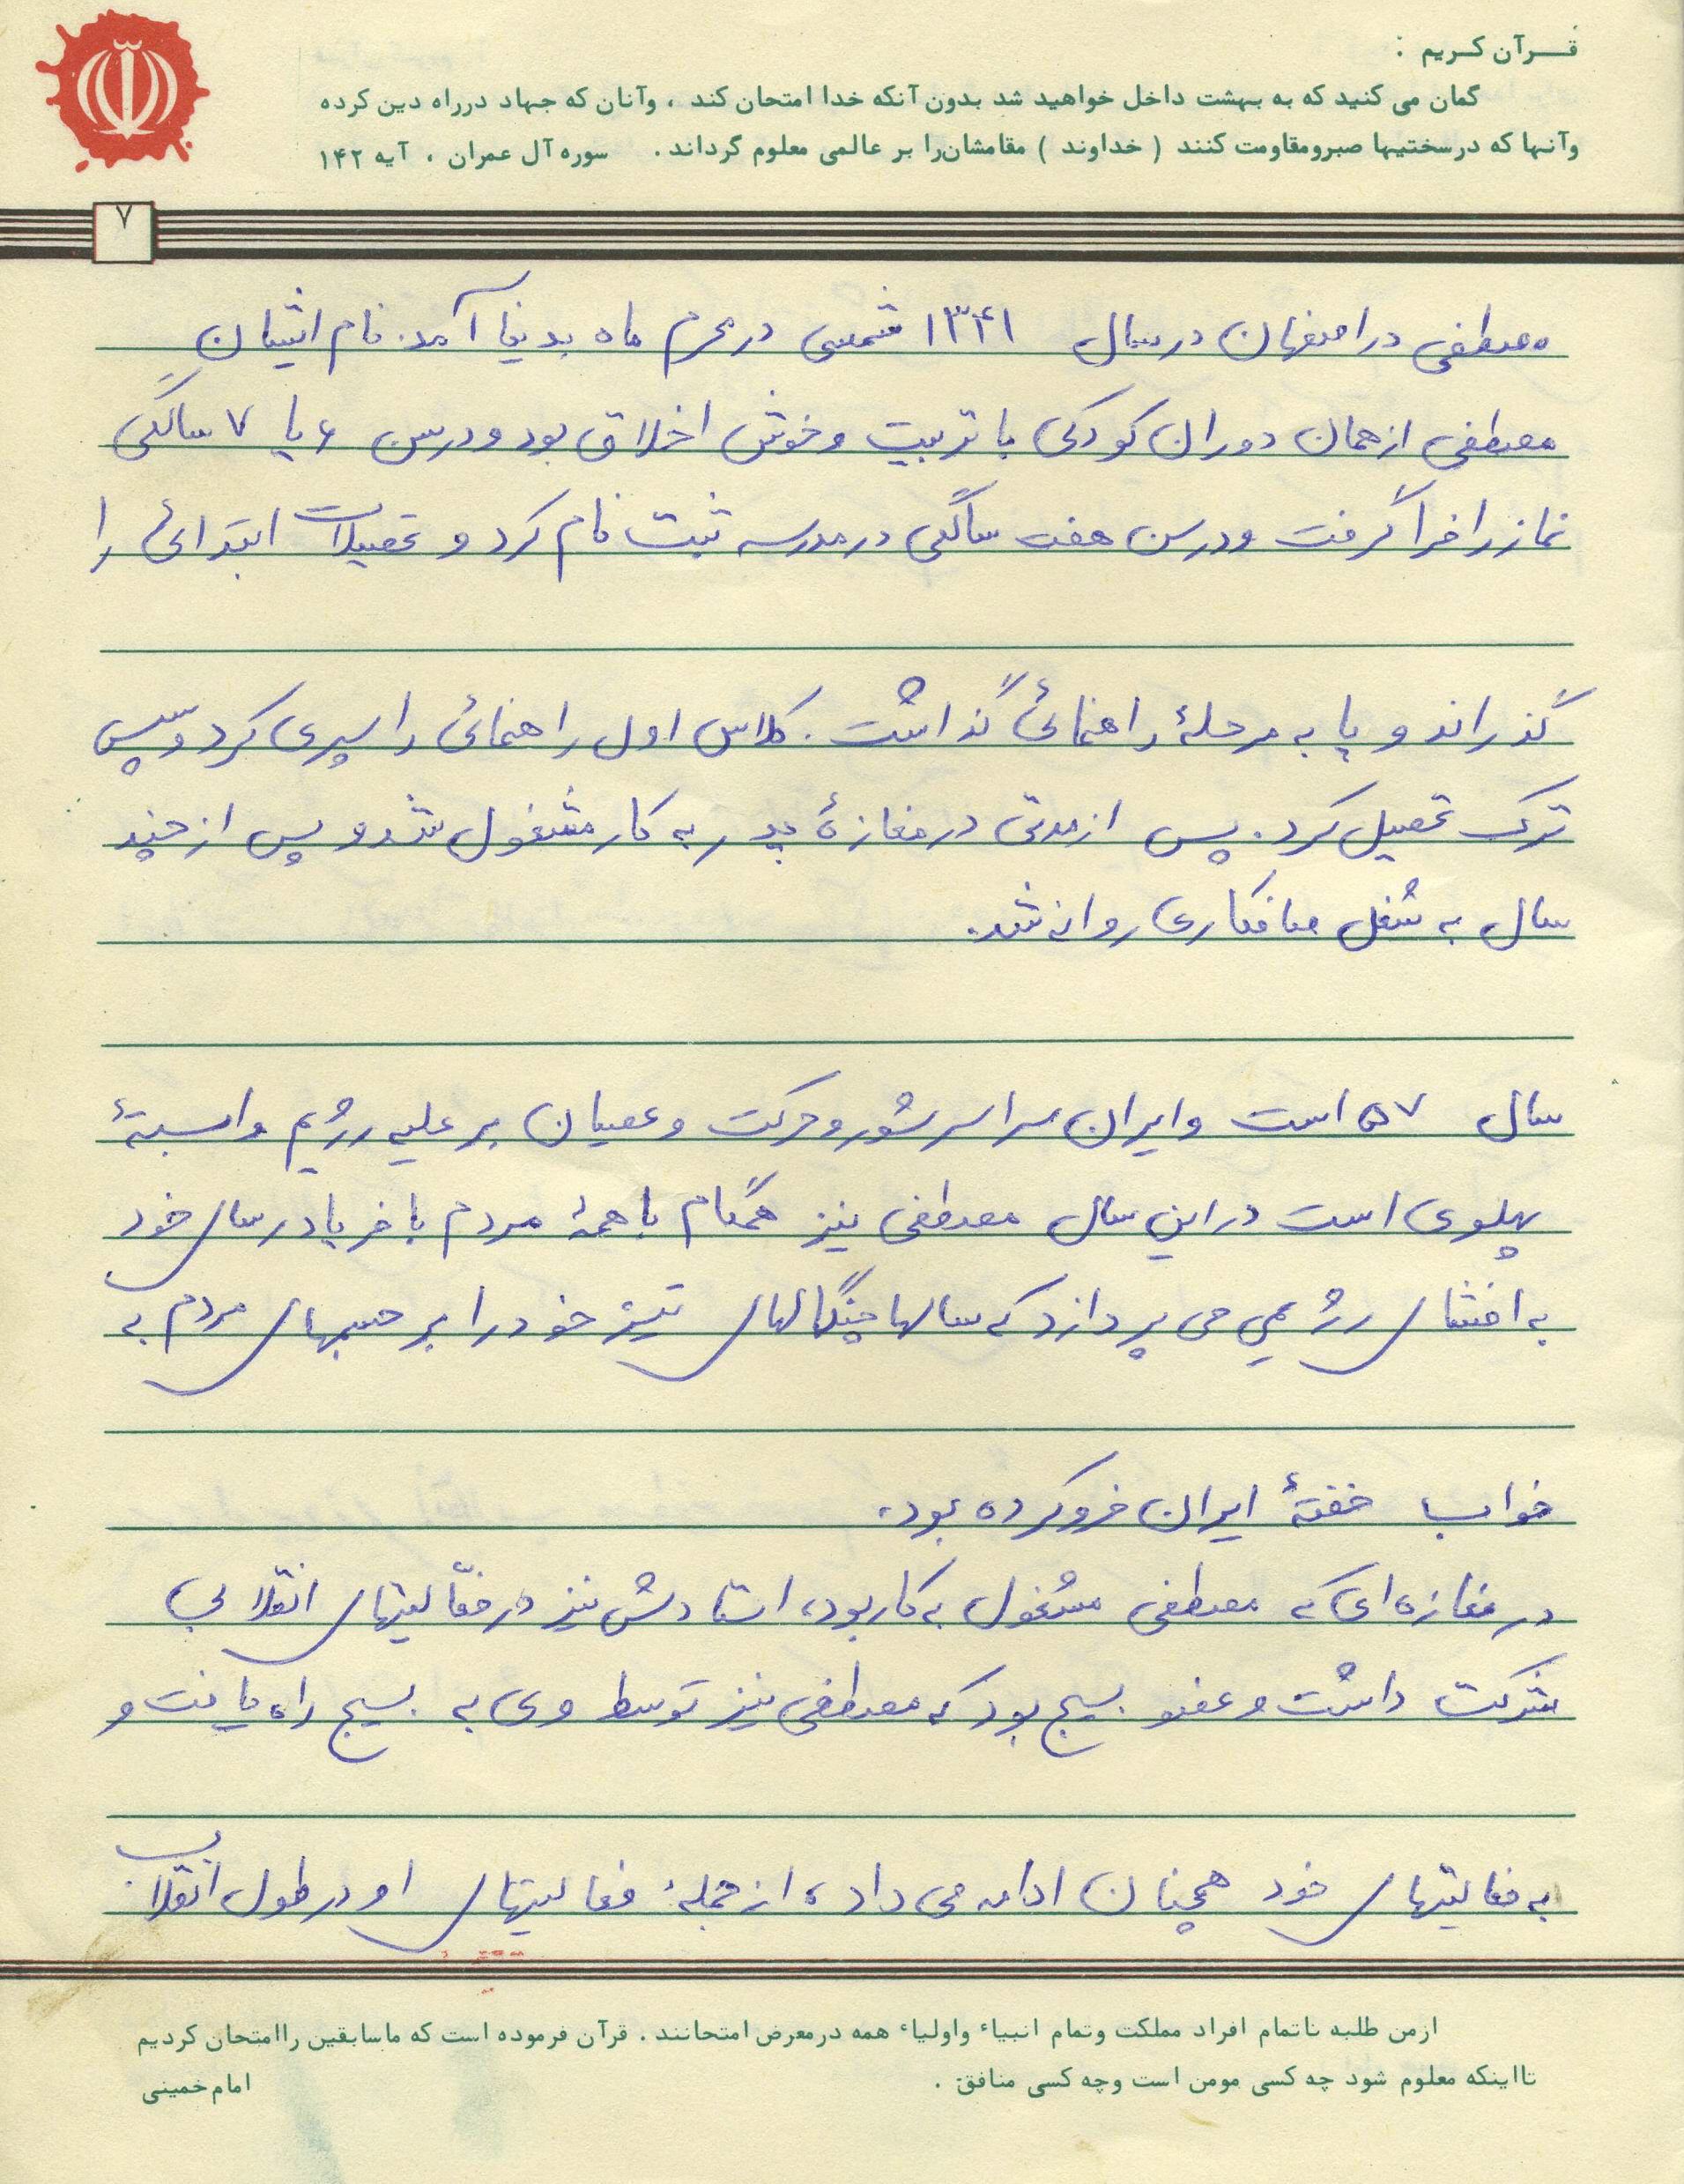 قـــرآن کـریم :
گمان می کنید که به بهشت داخل خواهید شد بدون آنکه خدا امتحان کند ، وآنان که جهاد درراه دین کرده
وآنها که درسختیها صبرومقاومت کنند ( خداوند ) مقامشان‌را بر عالمی معلوم گرداند . سوره آل عمران ، آیه ۱۴۲
۷
مصطفی در اصفهان در سال ۱۳۴۱ شمسی در محرم ماه بدنیا آمد. نام ایشان
مصطفی از همان دوران کودکی با تربیت و خوش اخلاق بود و در سن ۶ یا ۷ سالگی
نماز را فرا گرفت و در سن هفت سالگی در مدرسه ثبت نام کرد و تحصیلات ابتدائی را
گذراند و پا به مرحلۀ راهنمائی گذاشت. کلاس اول راهنمائی را سپری کرد و سپس
ترک تحصیل کرد. پس از مدتی در مغازۀ پدر به کار مشغول شد و پس از چند
سال به شغل صافکاری روانه شد.
سال ۵۷ است و ایران سراسر شور و حرکت و عصیان بر علیه رژیم وابستۀ
پهلوی است در این سال مصطفی نیز همگام با همۀ مردم با فریاد رسای خود
به افشای رژیمی می پردازد که سالها چنگالهای تیز خود را بر جسمهای مردم به
خواب خفتۀ ایران فرو کرده بود.
در مغازه ای که مصطفی مشغول به کار بود، استادش نیز در فعّالیتهای انقلابی
شرکت داشت و عضو بسیج بود که مصطفی نیز توسط وی به بسیج راه یافت و
به فعالیتهای خود همچنان ادامه می داد، از جملۀ فعالیتهای او در طول انقلاب
ازمن طلبه تاتمام افراد مملکت وتمام انبیاء واولیاء همه درمعرض امتحانند . قرآن فرموده است که ماسابقین راامتحان کردیم
تااینکه معلوم شود چه کسی مومن است وچه کسی منافق . امام خمینی